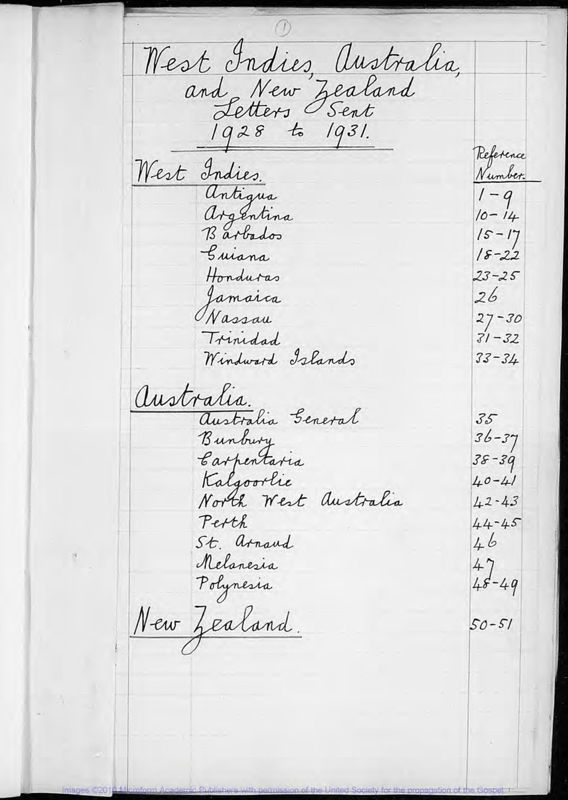 1
West Indies, Australia,
and New Zealand
Letters Sent
1928 to 1931.
Reference
Number.
West Indies.
Antigua 1-9
Argentina 10-14
Barbados 15-17
Guiana 18-22
Honduras 23-25
Jamaica 26
Nassau 27-30
Trinidad 31-32
Windward Islands 33-34
Australia.
Australia General 35
Bunbury 36-37
Carpentaria 38-39
Kalgoorlie 40-41
North West Australia 42-43
Perth 44-45
St. Arnaud 46
Melanesia 47
Polynesia 48-49
New Zealand. 50-51
Images ©2010 Microform Academic Publishers with permission of the United Society for the propagation of the Gospel